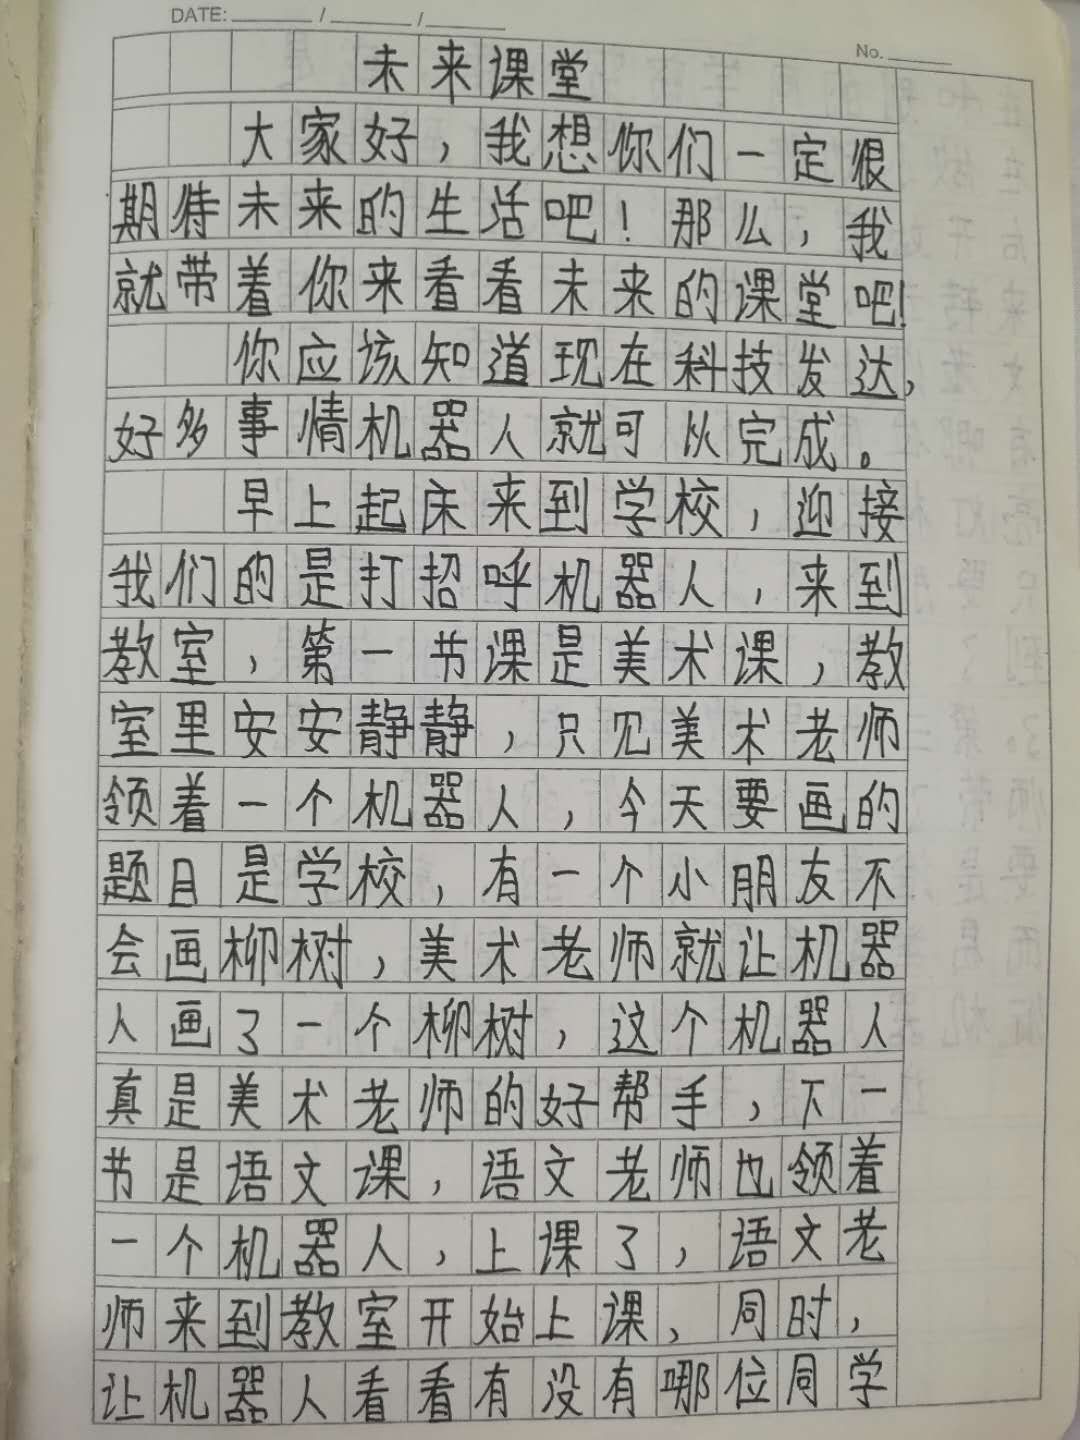 DATE: / /
No.
未来课堂
大家好，我想你们一定很
期待未来的生活吧！那么，我
就带着你来看看未来的课堂吧！
你应该知道现在科技发达，
好多事情机器人就可从完成。
早上起床来到学校，迎接
我们的是打招呼机器人，来到
教室，第一节课是美术课，教
室里安安静静，只见美术老师
领着一个机器人，今天要画的
题目是学校，有一个小朋友不
会画柳树，美术老师就让机器
人画了一个柳树，这个机器人
真是美术老师的好帮手，下一
节是语文课，语文老师也领着
一个机器人，上课了，语文老
师来到教室开始上课，同时，
让机器人看看有没有哪位同学